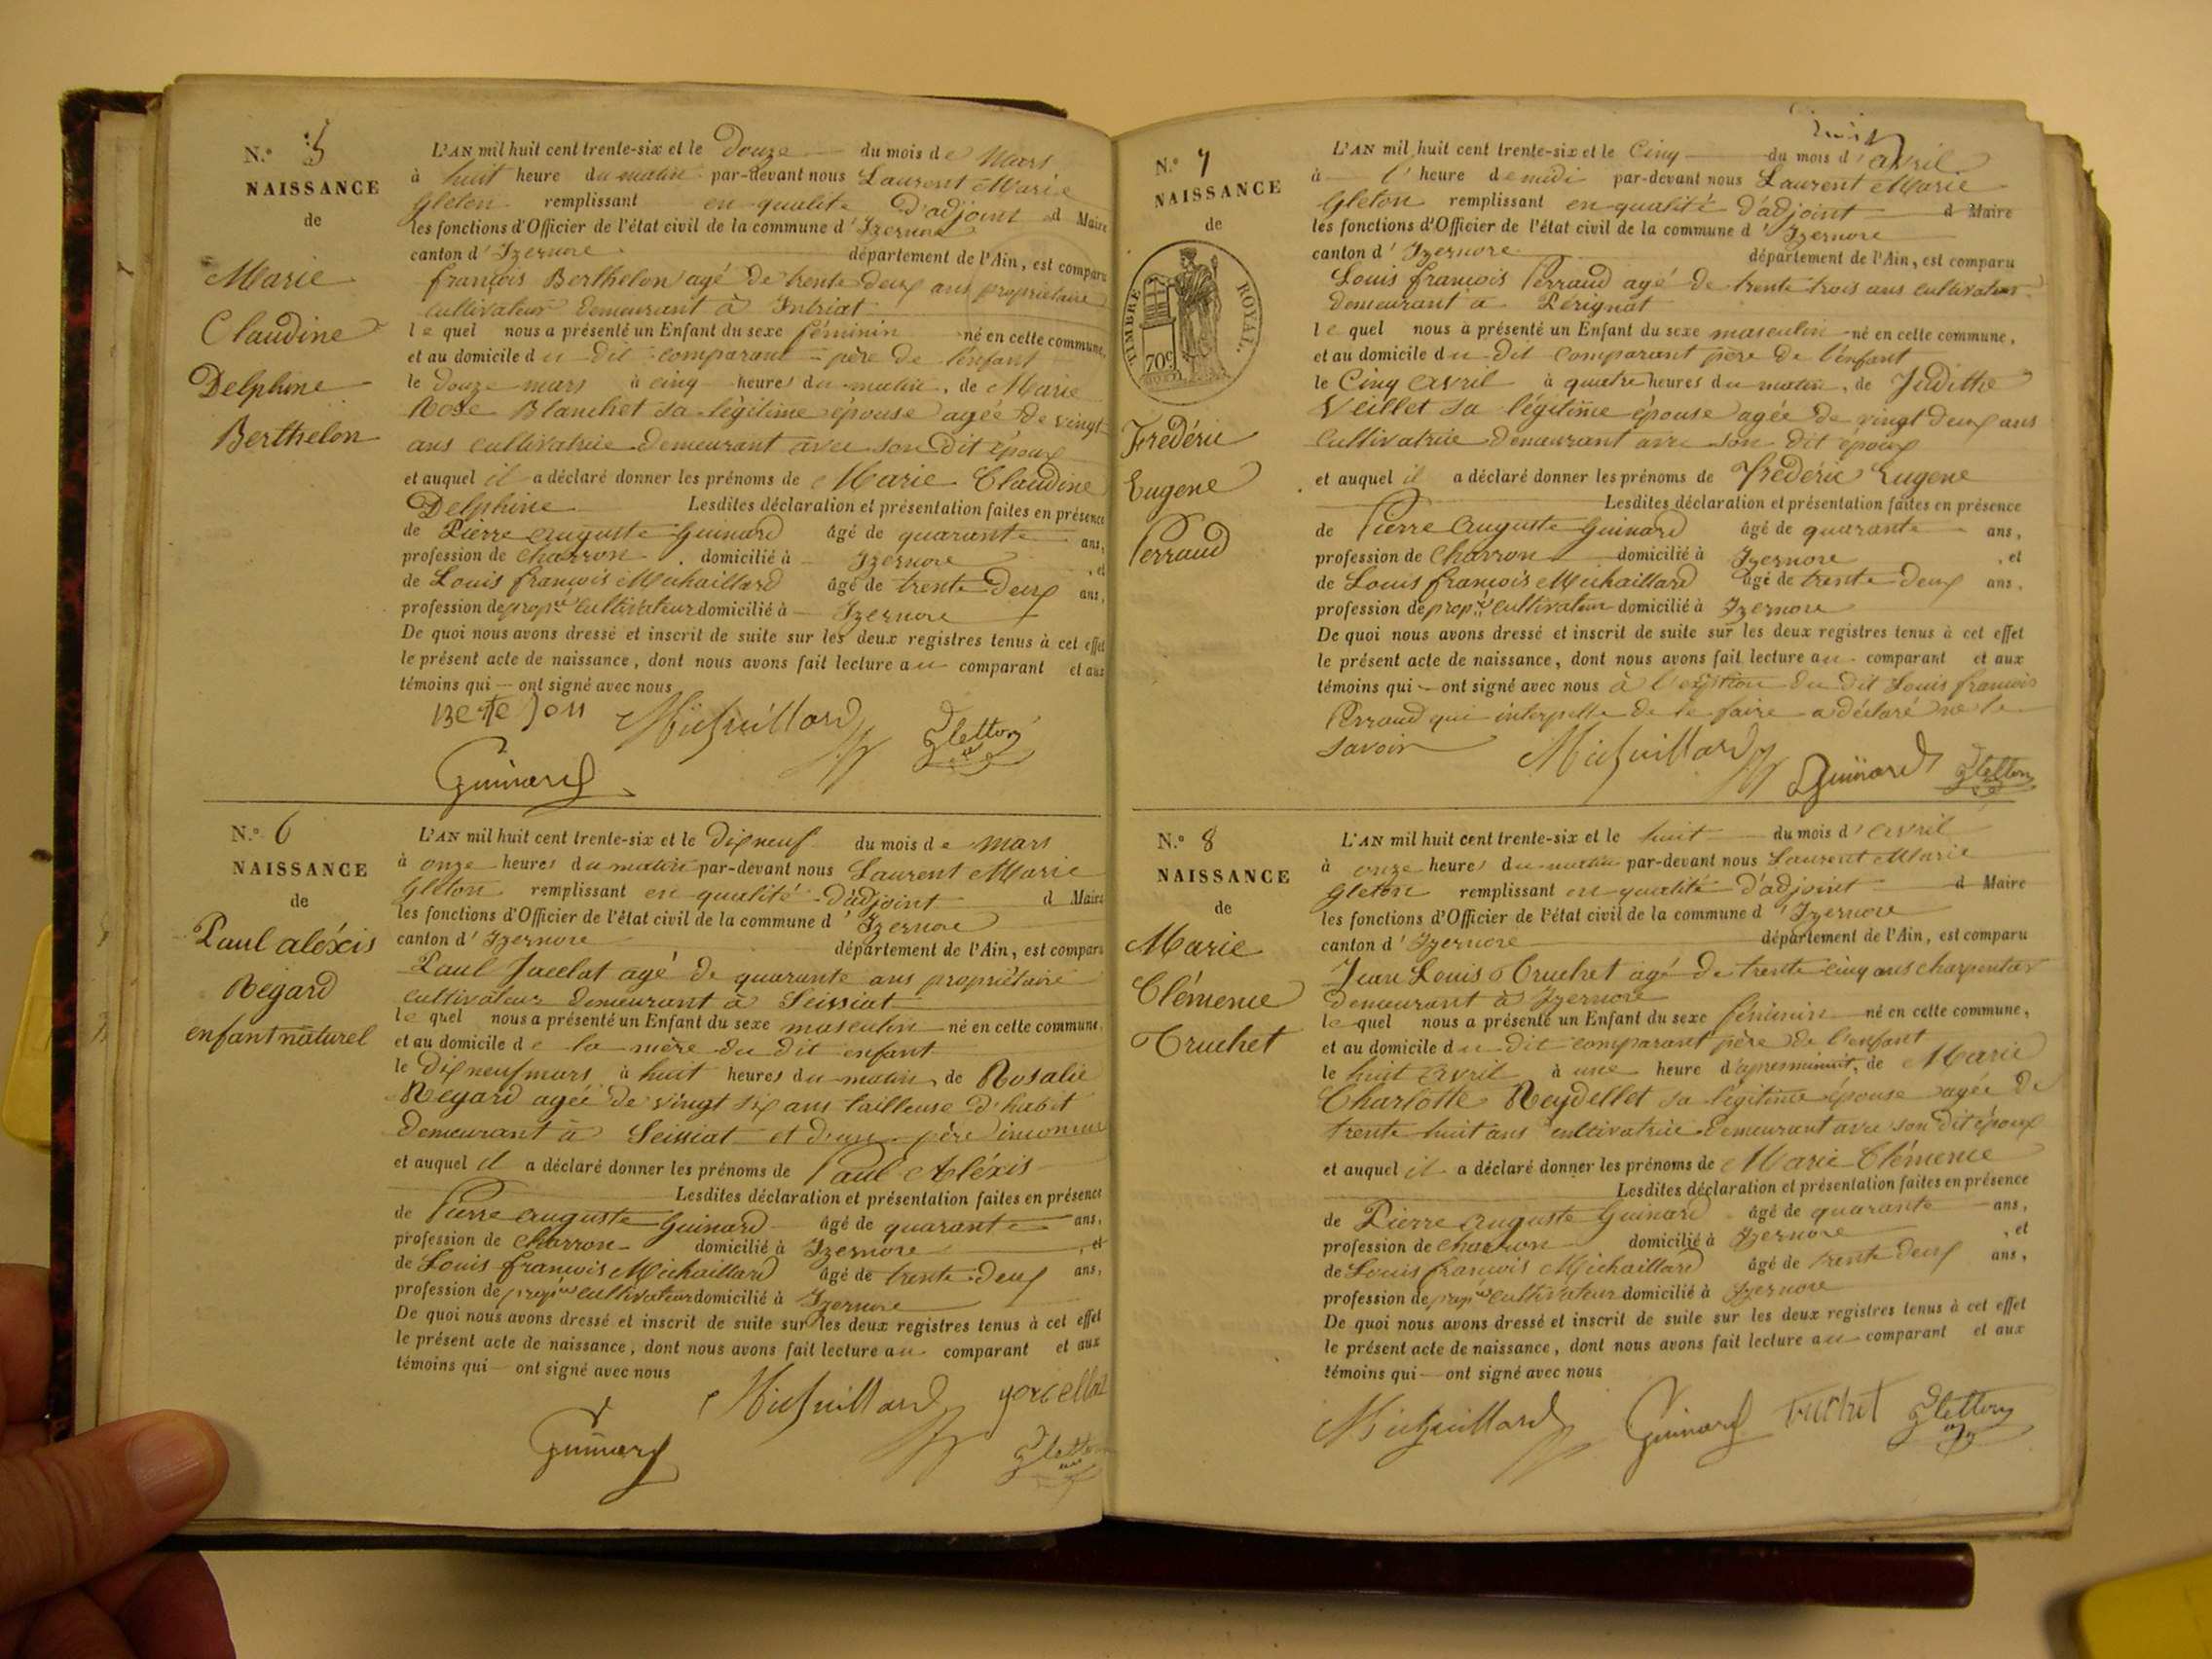 N.° 5
NAISSANCE
de
Marie
Claudine
Delphine
Berthelon
L'AN mil huit cent trente-six et le Douze du mois de Mars
à huit heure du matin par-devant nous Laurent Marie
Gleton remplissant en qualité D'adjoint d Maire
les fonctions d'Officier de l'état civil de la commune d'Izernore
canton d'Izernore département de l'Ain, est comparu
françois Berthelon agé De trente Deux ans propriétaire
cultivateur Demeurant à Intriat
le quel nous a présenté un Enfant du sexe féminin né en cette commune,
et au domicile du Dit comparant père De l'enfant
le Douze mars à cinq heures du matin, de Marie
Rose Blanchet sa légitime épouse agée De vingt
ans cultivatrice Demeurant avec son Dit époux
et auquel il a déclaré donner les prénoms de Marie Claudine
Delphine Lesdites déclaration et présentation faites en présence
de Pierre auguste Guinard âgé de quarante ans,
profession de Charron domicilié à Izernore , et
de Louis françois Michaillard âgé de trente Deux ans,
profession de prop.re cultivateur domicilié à Izernore
De quoi nous avons dressé et inscrit de suite sur les deux registres tenus à cet effet
le présent acte de naissance, dont nous avons fait lecture au comparant et aux
témoins qui ont signé avec nous
Michaillard Gletton
Guinard
N.° 6
NAISSANCE
de
Paul aléxis
Regard
enfant naturel
L'AN mil huit cent trente-six et le Dix neuf du mois de mars
à onze heures du matin par-devant nous Laurent Marie
Gleton remplissant en qualité D'adjoint d Maire
les fonctions d'Officier de l'état civil de la commune d'Izernore
canton d'Izernore département de l'Ain, est comparu
Paul Jacelat agé de quarante ans propriétaire
cultivateur Demeurant à Seissiat
le quel nous a présenté un Enfant du sexe masculin né en cette commune,
et au domicile de la mère du dit enfant
le Dix neuf mars à huit heures du matin, de Rosalie
Regard agée De vingt six ans tailleuse D'habit
Demeurant à Seissiat et D'un père inconnu
et auquel il a déclaré donner les prénoms de Paul Aléxis
Lesdites déclaration et présentation faites en présence
de Pierre auguste Guinard âgé de quarante ans,
profession de Charron domicilié à Izernore , et
de Louis françois Michaillard âgé de trente Deux ans,
profession de prop.re cultivateur domicilié à Izernore
De quoi nous avons dressé et inscrit de suite sur les deux registres tenus à cet effet
le présent acte de naissance, dont nous avons fait lecture au comparant et aux
témoins qui ont signé avec nous
Michaillard
Guinard Gletton
N.° 7
NAISSANCE
de
TIMBRE ROYAL.
70c
Frédéric
Eugene
Perraud
L'AN mil huit cent trente-six et le Cinq du mois d'avril
à l'heure de midi par-devant nous Laurent Marie
Gleton remplissant en qualité D'adjoint d Maire
les fonctions d'Officier de l'état civil de la commune d'Izernore
canton d'Izernore département de l'Ain, est comparu
Louis françois Perraud agé De trente trois ans cultivateur
Demeurant à Perignat
le quel nous à présenté un Enfant du sexe masculin né en cette commune,
et au domicile du Dit comparant père De l'enfant
le Cinq avril à quatre heures du matin, de Judithe
Veillet sa légitime épouse agée De vingt Deux ans
Cultivatrice Demeurant avec son dit époux
et auquel il a déclaré donner les prénoms de frédéric Eugene
Lesdites déclaration et présentation faites en présence
de Pierre auguste Guinard âgé de quarante ans,
profession de Charron domicilié à Izernore , et
de Louis françois Michaillard âgé de trente Deux ans,
profession de prop.re cultivateur domicilié à Izernore
De quoi nous avons dressé et inscrit de suite sur les deux registres tenus à cet effet
le présent acte de naissance, dont nous avons fait lecture au comparant et aux
témoins qui ont signé avec nous à l'exeption du Dit Louis françois
Perraud qui interpellé De le faire a déclaré ne le
savoir
Michaillard Guinard Gletton
N.° 8
NAISSANCE
de
Marie
Clémence
Truchet
L'AN mil huit cent trente-six et le huit du mois d'avril
à onze heures du matin par-devant nous Laurent Marie
Gleton remplissant en qualité D'adjoint d Maire
les fonctions d'Officier de l'état civil de la commune d'Izernore
canton d'Izernore département de l'Ain, est comparu
Jean Louis Truchet agé De trente cinq ans charpentier
Demeurant à Izernore
le quel nous a présenté un Enfant du sexe féminin né en cette commune,
et au domicile du dit comparant père De l'enfant
le huit avril à une heure d'apresminuit, de Marie
Charlotte Reydellet sa légitime épouse agée De
trente huit ans cultivatrice Demeurant avec son Dit époux
et auquel il a déclaré donner les prénoms de Marie Clémence
Lesdites déclaration et présentation faites en présence
de Pierre auguste Guinard âgé de quarante ans,
profession de Charron domicilié à Izernore , et
de Louis françois Michaillard âgé de trente Deux ans,
profession de prop.re cultivateur domicilié à Izernore
De quoi nous avons dressé et inscrit de suite sur les deux registres tenus à cet effet
le présent acte de naissance, dont nous avons fait lecture au comparant et aux
témoins qui ont signé avec nous
Michaillard Guinard truchet Gletton